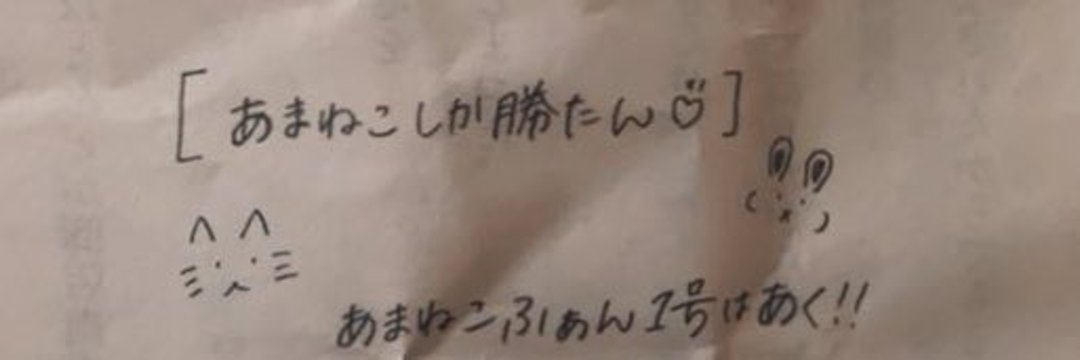 [あまねこしか勝たん♡]
あまねこふぁん1号はあく!!